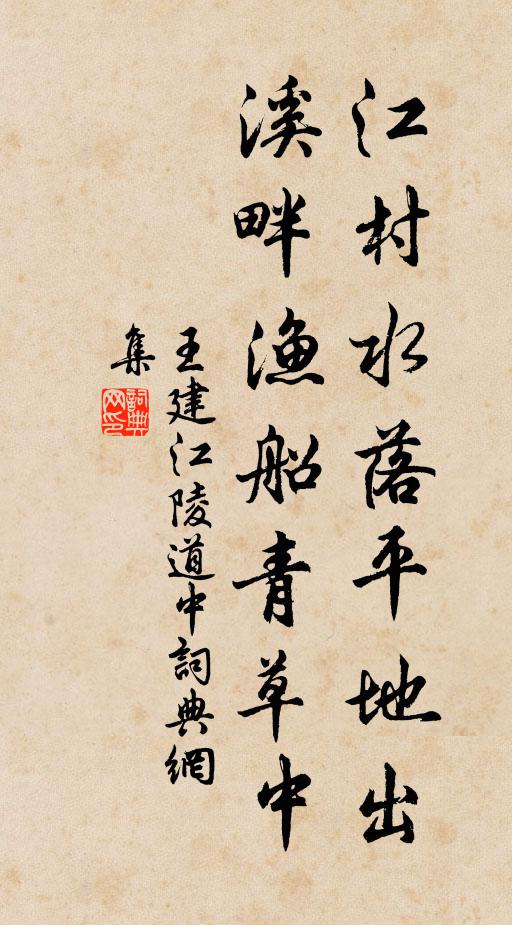 江村水落平地出
溪畔漁船青草中
王建江陵道中詞典網
集
詞典
网印